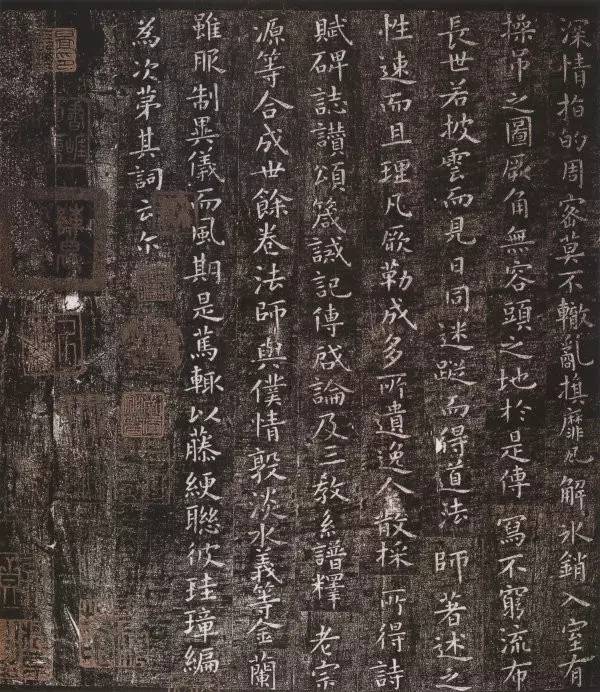 深情指的周密莫不轍亂旗靡瓦解冰銷入室有
操吊之圖厥角無容頭之地於是傳寫不窮流布
長世若披雲而見日同迷蹤而得道法師著述之
性速而且理凡厥勒成多所遺逸今散採所得詩
賦碑誌讚頌箴誡記傳啟論及三教系譜釋老宗
源等合成世餘卷法師與僕情敦淡水義等金蘭
雖服制異儀而風期是篤輒以藤綆聯彼珪璋編
為次第其詞云尔